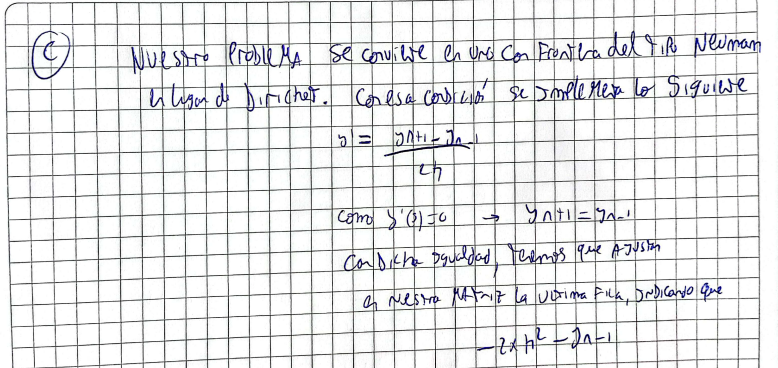 C Nuestro Problema se convierte en uno con Frontera del tipo Neuman
en lugar de Dirichet. Con esa condición se implementa lo Siguiente
y' = (yn+1 - yn-1) / 2h
como y'(3)=0 → yn+1 = yn-1
Con Dicha igualdad, tenemos que Ajustar
en nuestra MATriz la ultima Fila, indicando que
-2xh² - yn-1